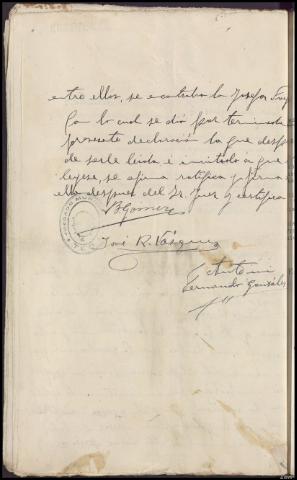 entre ellos, se encontraba la Josefa
Con lo cual se dió por terminada
presente declaración la que desp
de serle leida é invitado á que
leyese, se afirma ratifica y firma
ello despues del Sr. Juez y certifico
B Gomez
JUZGADO MUN
José R. Vásquez
Antemi
Fernando González